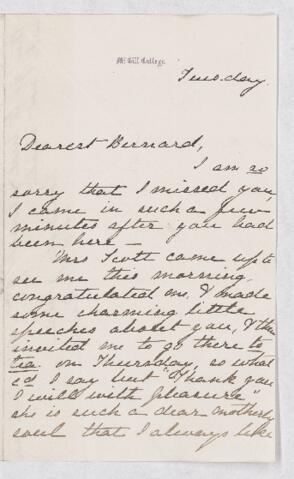 McGill College.
Tuesday.
Dearest Bernard,
I am so
sorry that I missed you,
I came in such a few
minutes after you had
been here –
Mrs Scott came up to
see me this morning,
congratulated me, & made
some charming little
speeches about you, & then
invited me to go there to
tea on Thursday, so what
cd I say but "Thank you
I will with pleasure"
she is such a dear motherly
soul that I always like